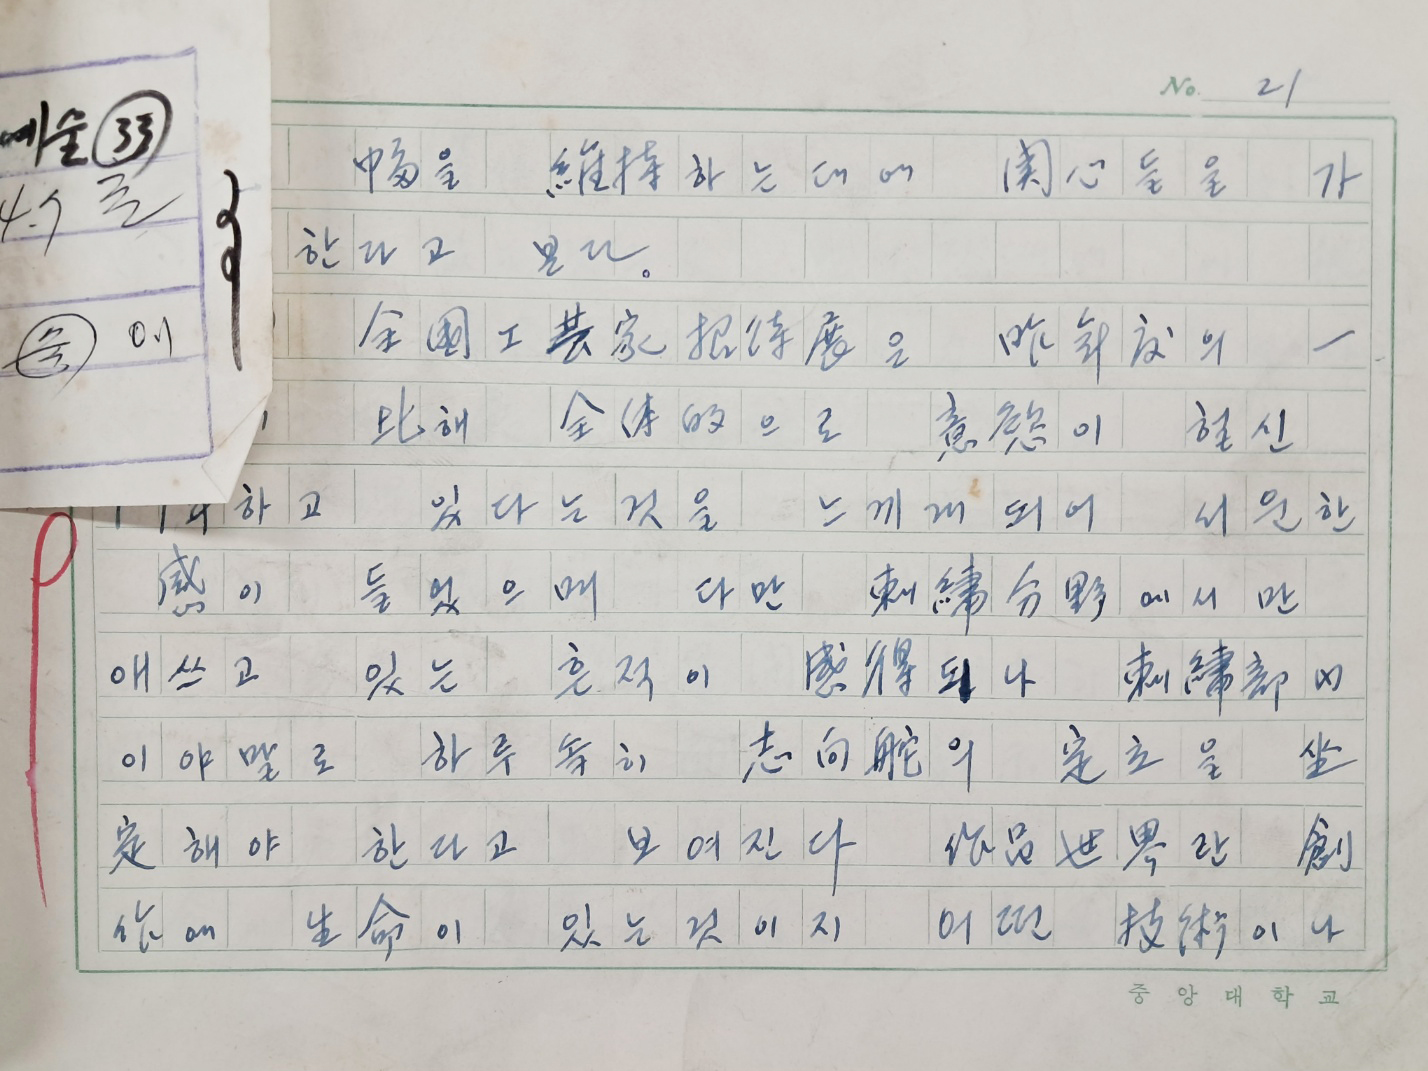 No. 21
예술 ㉝
幅을 維持하는데에 関心들을 가
한다고 본다。
全國工芸家招待展은 昨年度의 一
比해 全体的으로 意慾이 헌신
하고 있다는것을 느게게 되어 시원한
感이 들었으며 다만 刺繡分野에서만
애쓰고 있는 흔적이 感得되나 刺繡部内
이야말로 하루속히 志向舵의 定立을 坐
定해야 한다고 보여진다 作品世界란 創
作에 生命이 있는것이지 어떤 技術이나
중앙대학교